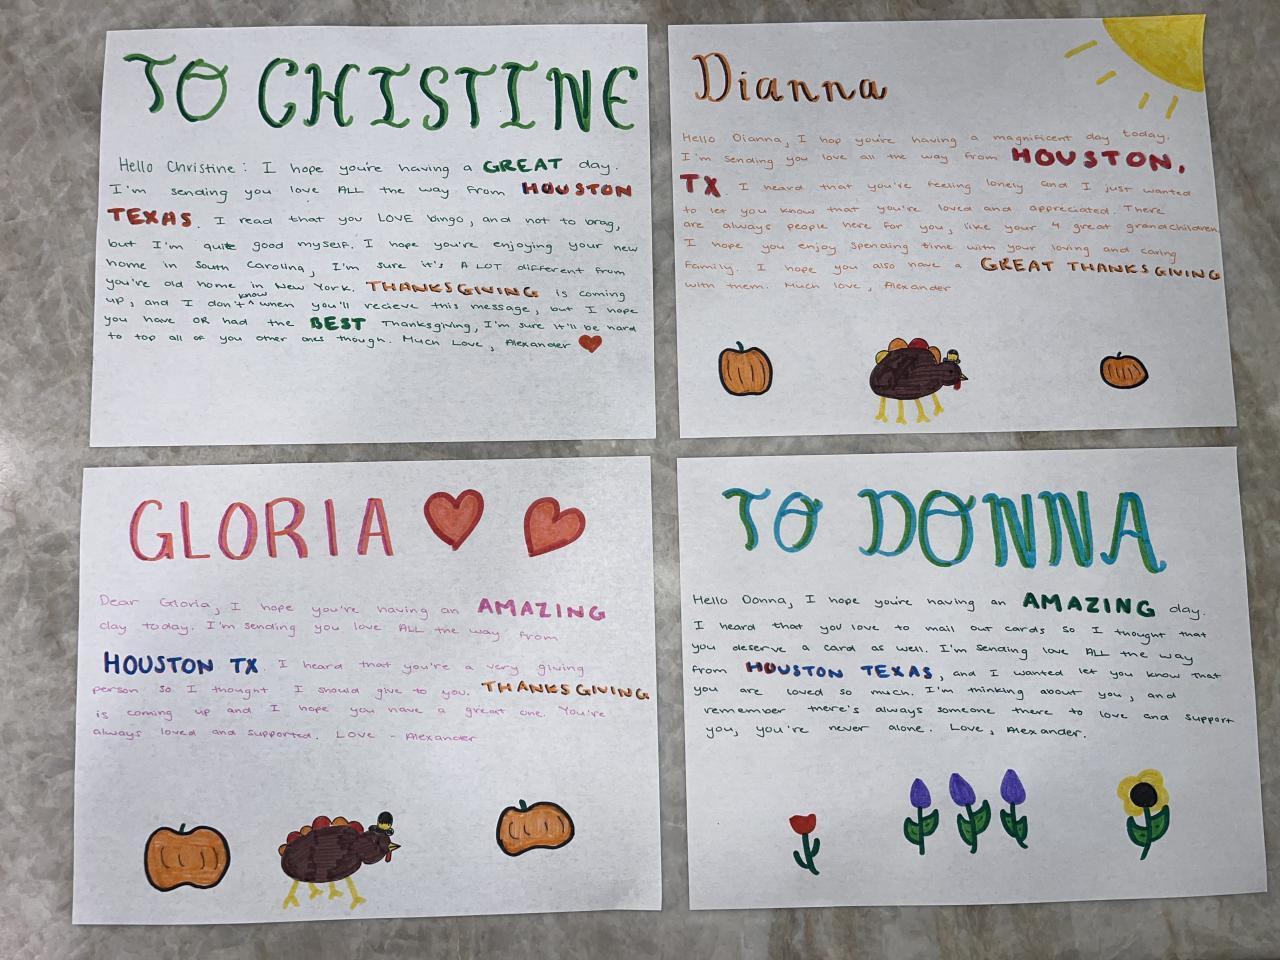 TO CHISTINE
Hello Christine: I hope you're having a GREAT day.
I'm sending you love ALL the way from HOUSTON
TEXAS. I read that you LOVE bingo, and not to brag,
but I'm quite good myself. I hope you're enjoying your new
home in South Carolina, I'm sure it's A LOT different from
you're old home in New York. THANKSGIVING is coming
up, and I don't ^know when you'll recieve this message, but I hope
you have OR had the BEST Thanksgiving, I'm sure it'll be hard
to top all of you other ones though. Much Love, Alexander
Dianna
Hello Dianna, I hop you're having a magnificent day today.
I'm sending you love all the way from HOUSTON,
TX I heard that you're feeling lonely and I just wanted
to let you know that you're loved and appreciated. There
are always people here for you, like your 4 great grandchildren
I hope you enjoy spending time with your loving and caring
family. I hope you also have a GREAT THANKSGIVING
with them. Much love, Alexander
GLORIA
Dear Gloria, I hope you're having an AMAZING
day today. I'm sending you love ALL the way from
HOUSTON TX. I heard that you're a very giving
person so I thought I should give to you. THANKSGIVING
is coming up and I hope you have a great one. You're
always loved and supported. Love - Alexander
TO DONNA
Hello Donna, I hope you're having an AMAZING day.
I heard that you love to mail out cards so I thought that
you deserve a card as well. I'm sending love ALL the way
from HOUSTON TEXAS, and I wanted let you know that
you are loved so much. I'm thinking about you, and
remember there's always someone there to love and support
you, you're never alone. Love, Alexander.